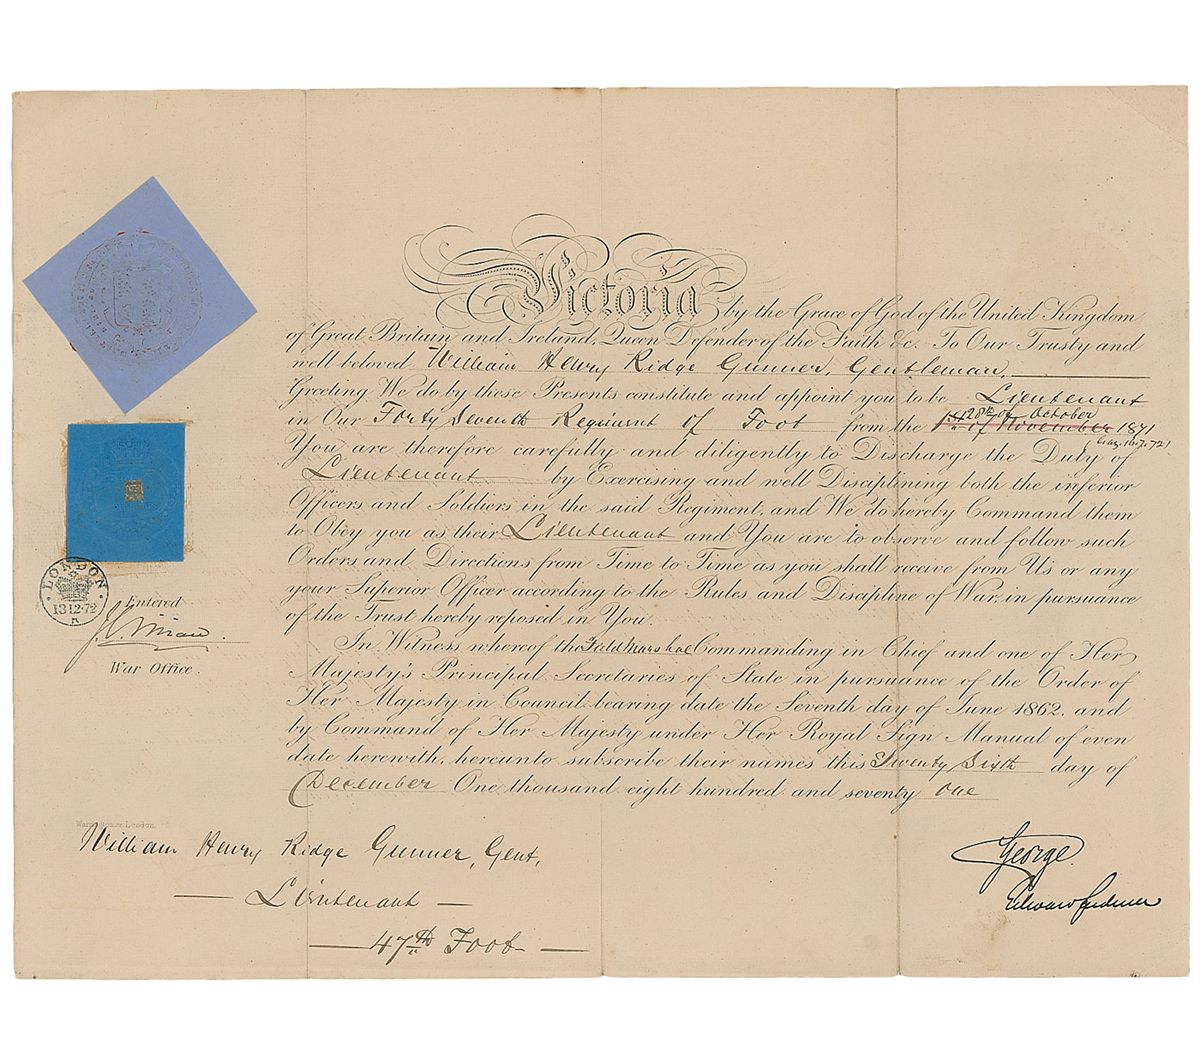 Victoria by the Grace of God of the United Kingdom
of Great Britain and Ireland, Queen Defender of the Faith &c. To Our Trusty and
well beloved William Henry Ridge Gunner, Gentleman,
Greeting We do by these Presents constitute and appoint you to be Lieutenant
in Our Forty Seventh Regiment of Foot from the 1st of November 28th of October 1871
(Gaz. 16.7.72)
You are therefore carefully and diligently to Discharge the Duty of
Lieutenant by Exercising and well Disciplining both the inferior
Officers and Soldiers in the said Regiment, and We do hereby Command them
to Obey you as their Lieutenant and You are to observe and follow such
Orders and Directions from Time to Time as you shall receive from Us or any
your Superior Officer according to the Rules and Discipline of War, in pursuance
of the Trust hereby reposed in You.
In Witness whereof the Field Marshal Commanding in Chief and one of Her
Majesty's Principal Secretaries of State in pursuance of the Order of
Her Majesty in Council bearing date the Seventh day of June 1862. and
by Command of Her Majesty under Her Royal Sign Manual of even
date herewith, hereunto subscribe their names this Twenty Sixth day of
December One thousand eight hundred and seventy one
LONDON
13.12.72
Entered
War Office.
London.
William Henry Ridge Gunner, Gent,
Lieutenant
47th Foot
George
Edward